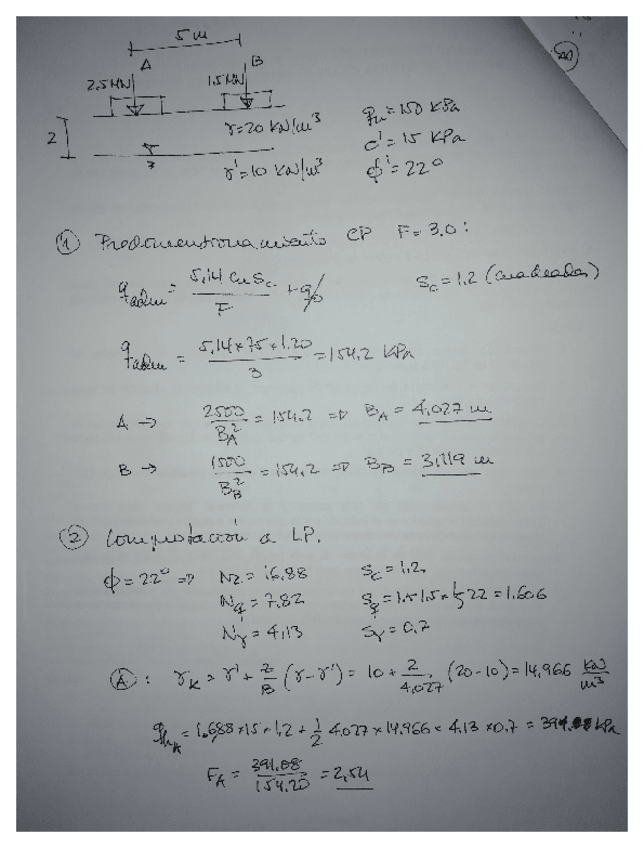 5 m
A
B
2.5 MN
1.5 MN
2
γ=20 kN/m³
γ'=10 kN/m³
qu=150 kPa
c'=15 kPa
φ'=22°
① Predimensionamiento CP F=3.0:
qadm = 5,14 cu Sc / F + q0
Sc=1,2 (cuadradas)
qadm = 5,14×75×1.20 / 3 = 154,2 kPa
A → 2500 / BA² = 154,2 ⇒ BA = 4,027 m
B → 1500 / BB² = 154,2 ⇒ BB = 3,119 m
② Comprobación a LP.
φ=22° ⇒ Nc = 16,88 Sc = 1,2
Nq = 7,82 Sq = 1+1,5×tg 22 = 1,606
Nγ = 4,13 Sγ = 0,7
Ⓐ: γk = γ' + z/B (γ-γ') = 10 + 2/4,027 (20-10) = 14,966 kN/m³
qhA = 16,88×15×1,2 + 1/2 4,027×14,966×4,13×0,7 = 391.08 kPa
FA = 391.08 / 154.20 = 2,54